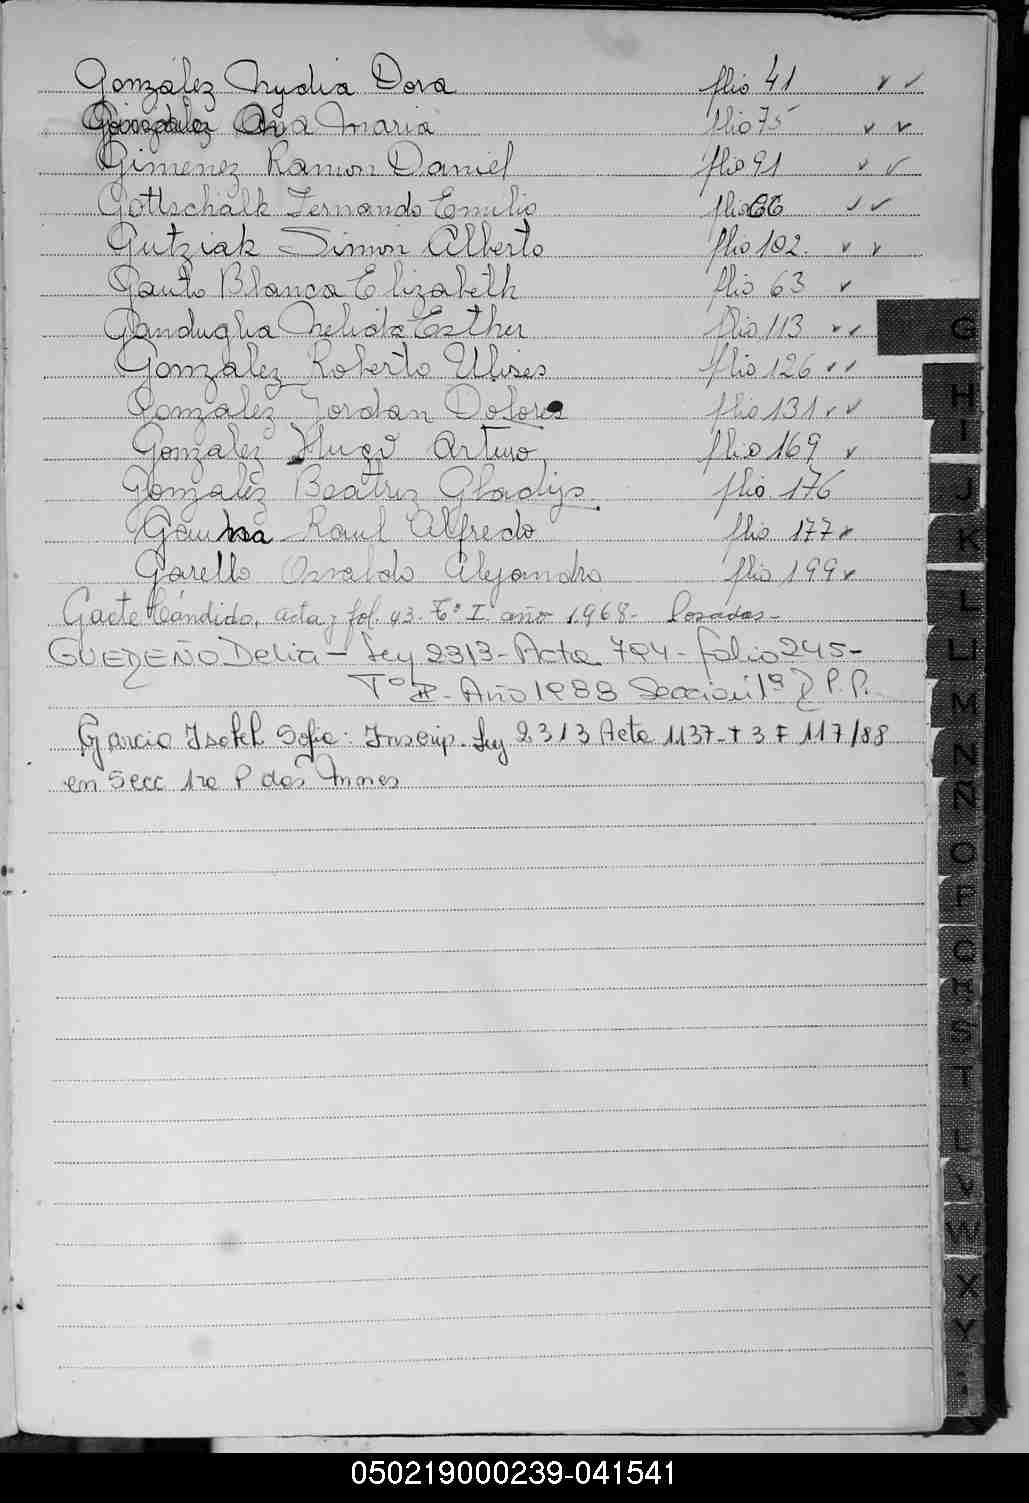 González Nydia Dora flio 41 ✓ ✓
González Ana Maria flio 75 ✓ ✓
Gimenez Ramon Daniel flio 91 ✓ ✓
Gottschalk Fernando Emilio flio 66 ✓ ✓
Gutziak Simon Alberto flio 102 ✓ ✓
Gauto Blanca Elizabeth flio 63 ✓
Ganduglia Nelida Esther flio 113 ✓ ✓
González Roberto Ulises flio 126 ✓ ✓
González Jordan Dolores flio 131 ✓ ✓
González Hugo Arturo flio 169 ✓
González Beatriz Gladys flio 176
Raul Alfredo flio 177 ✓
Garello Osvaldo Alejandro flio 199 ✓
Gaete Cándido, acta 7 fol. 43. Tº I. año 1.968- Posadas-
GUEDEÑO Delia - Ley 2313 - Acta 704 - folio 245 -
Tº II - Año 1988 Seccion 1ª P. P.
Garcia Isabel Sofia: Inscrip. Ley 2313 Acta 1137 - T 3 F 117/88
en Secc 1ra P dos
G
H
I
J
K
L
LI
M
N
Ñ
O
P
Q
R
S
T
U
V
W
X
Y
Z
050219000239-041541